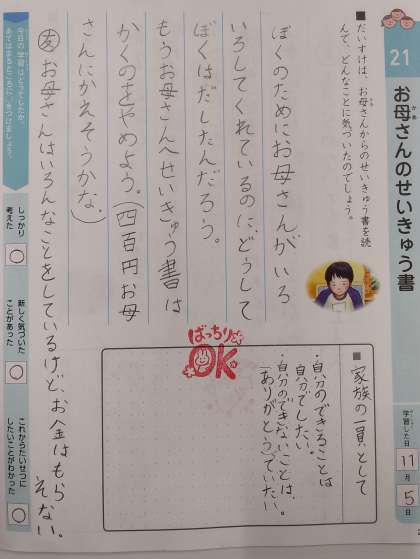 21
お母さんのせいきゅう書
学習した日
11月5日
■だいすけは、お母さんからのせいきゅう書を読
んで、どんなことに気づいたのでしょう。
ぼくのためにお母さんがいろ
いろしてくれているのに、どうして
ぼくはだしたんだろう。
もうお母さんへせいきゅう書は
かくのをやめよう。(四百円お母
さんにかえそうかな。)
友お母さんはいろんなことをしているけど、お金はもら
そない。
■家族の一員として
・自分のできることは
自分でしたい。
・自分のできないことは、
「ありがとう」でいたい。
ばっちり
OK
今日の学習はどうでしたか。
あてはまるところに○をつけましょう。
しっかり
考えた
○
新しく気づいた
ことがあった
○
これからたいせつに
したいことがわかった
○